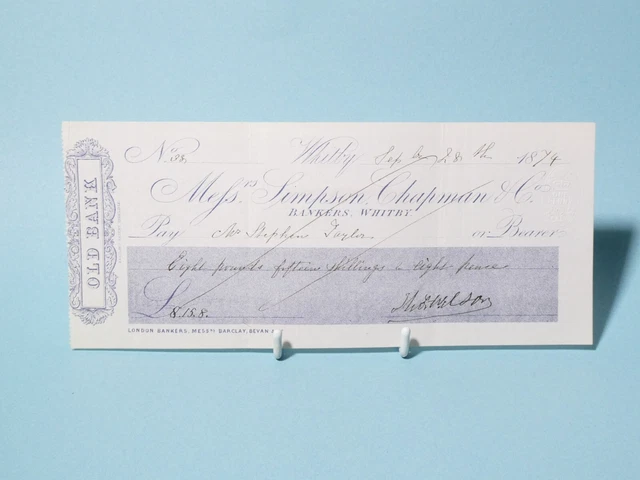 OLD BANK
No 38 Whitby Sep by 28 th 1874
Messrs Simpson, Chapman & Co.
BANKERS, WHITBY.
Pay Mr Stephen Taylor or Bearer
Eight pounds fifteen shillings & eight pence
£8.15.8.
LONDON BANKERS, MESSRS BARCLAY, BEVAN